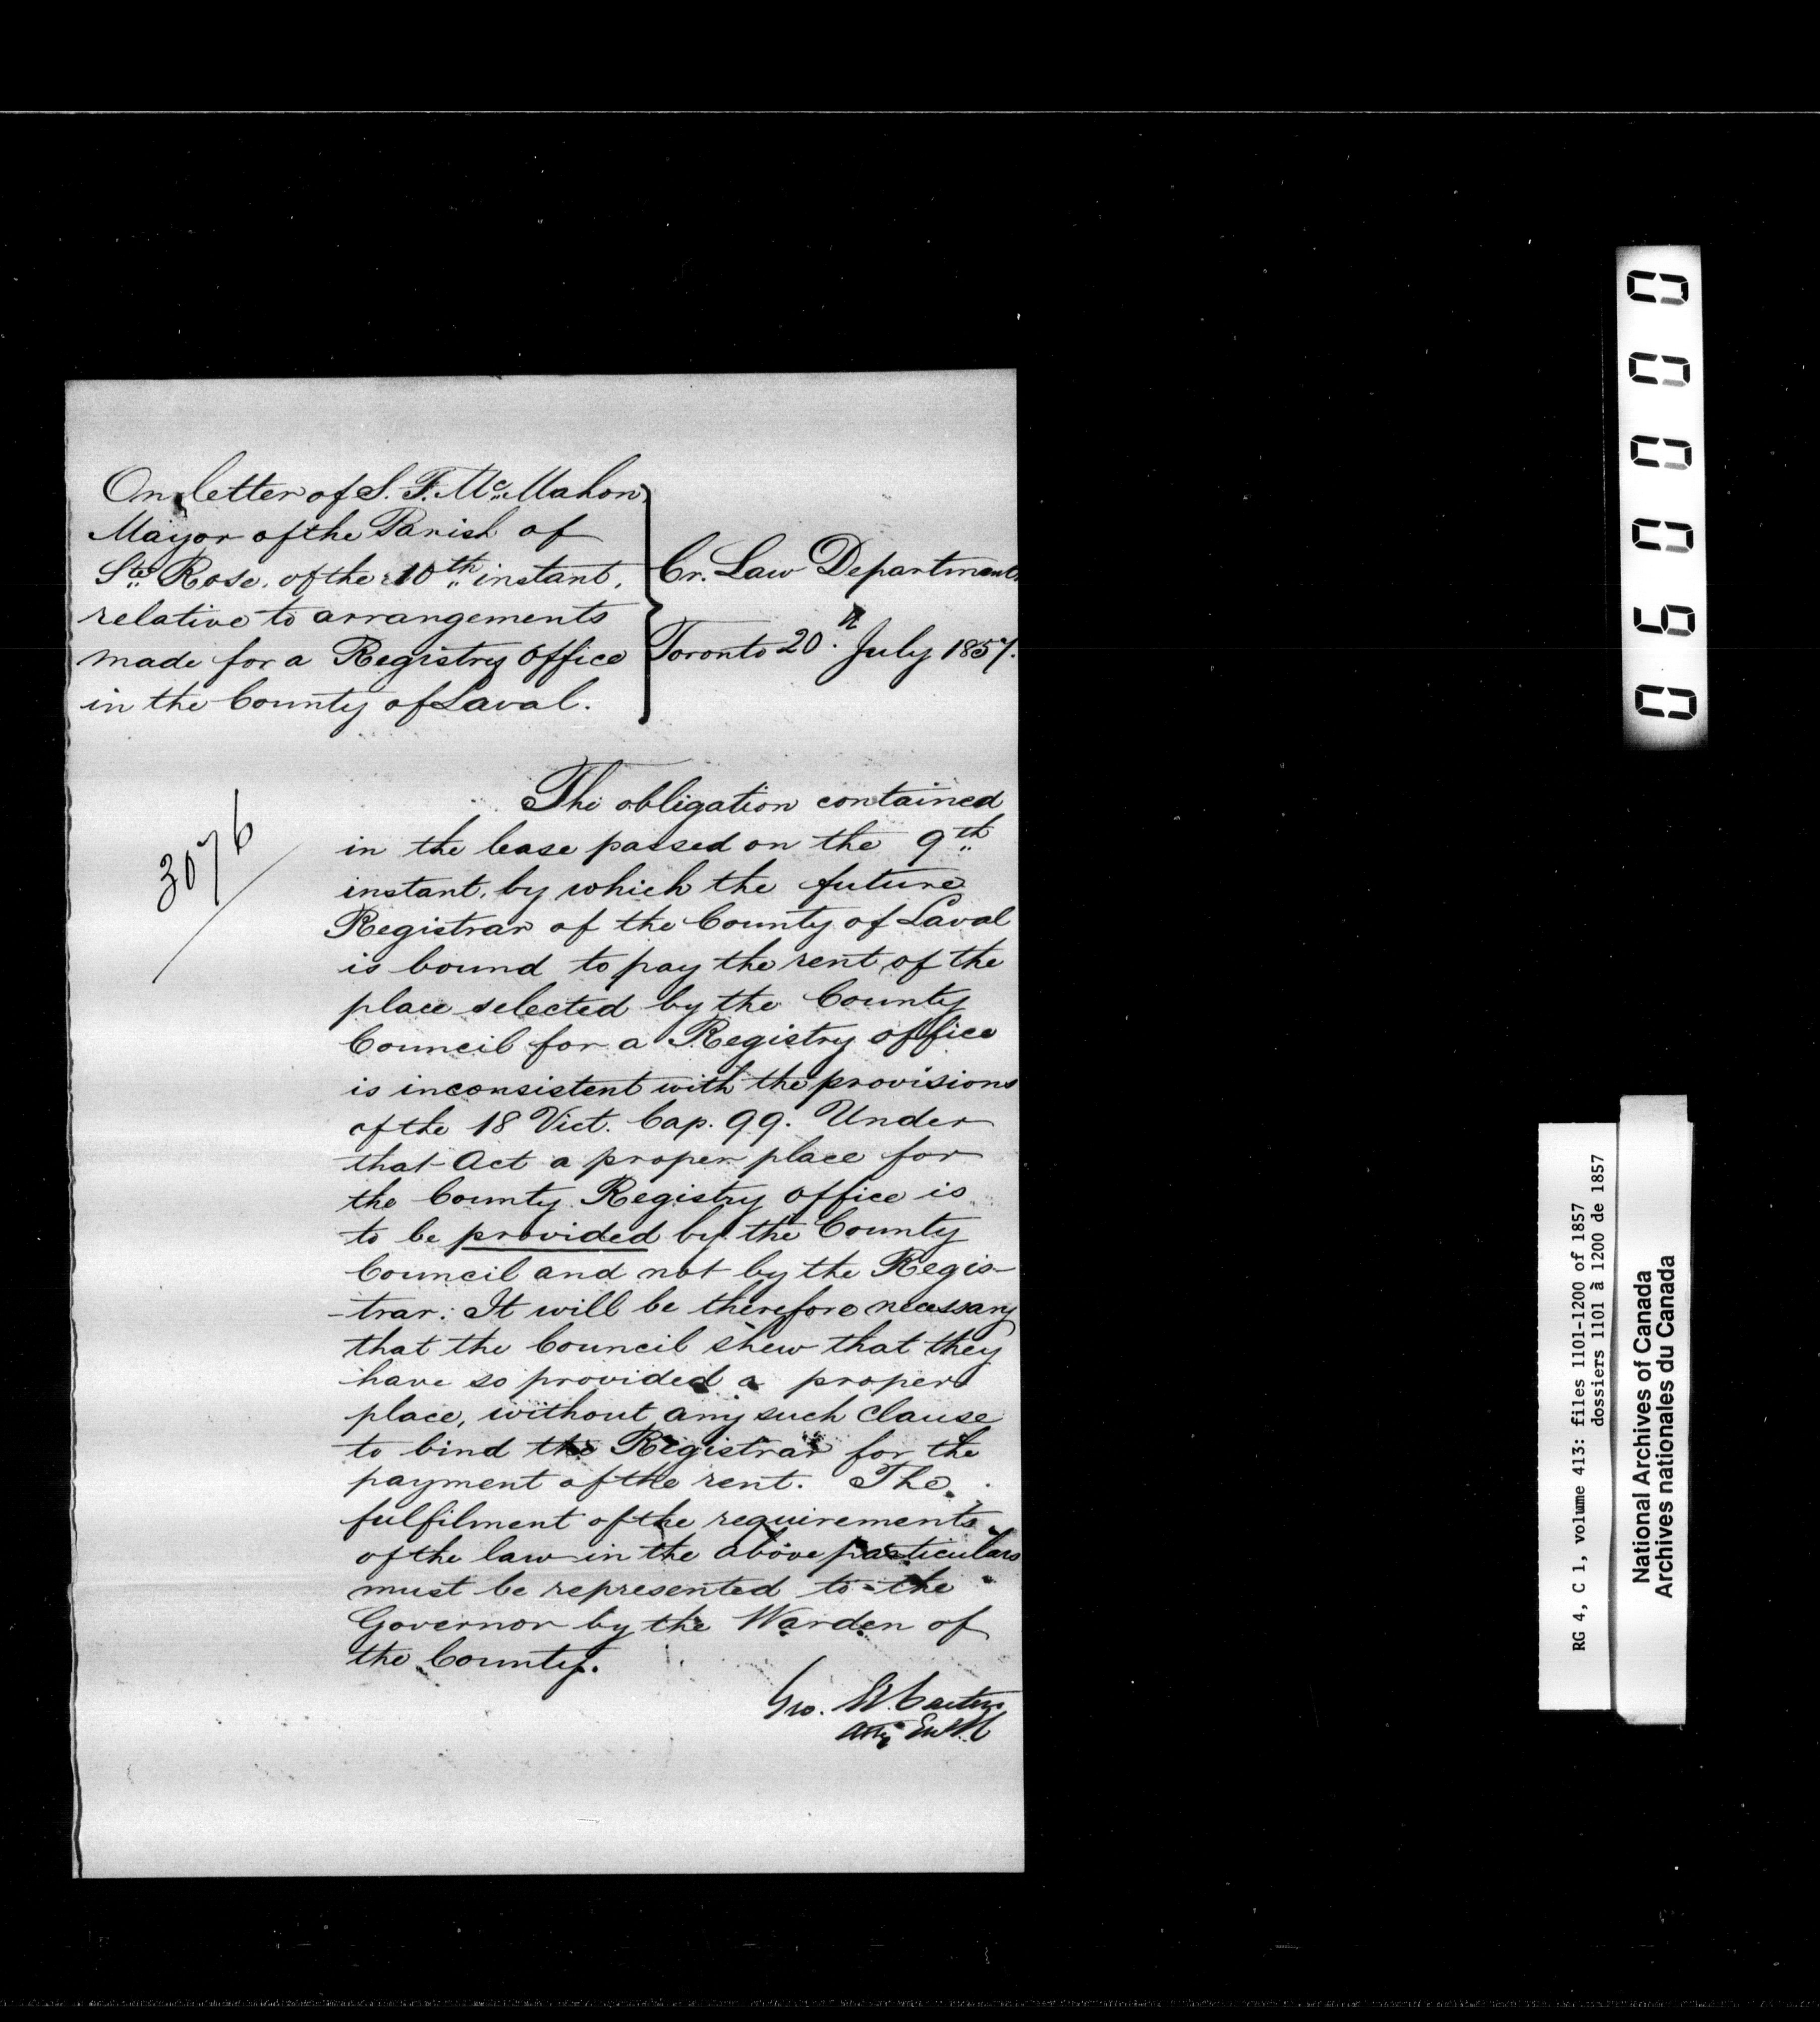 On letter of S. F. Mc Mahon,
Mayor of the Parish of
Ste Rose, of the 10th instant,
relative to arrangements
made for a Registry Office
in the County of Laval.
Cr. Law Department
Toronto 20th July 1857.
3076
The obligation contained
in the lease passed on the 9th
instant, by which the future
Registrar of the County of Laval
is bound to pay the rent of the
place selected by the County
Council for a Registry office
is inconsistent with the provisions
of the 18 Vict. Cap. 99. Under
that Act a proper place for
the County Registry Office is
to be provided by the County
Council and not by the Regis-
-trar. It will be therefore necessary
that the Council shew that they
have so provided a proper
place, without any such clause
to bind the Registrar for the
payment of the rent. The
fulfilment of the requirements
of the law in the above particulars
must be represented to the
Governor by the Warden of
the County.
Geo. Et. Cartier
Atty
060000
RG 4, C 1, volume 413: files 1101-1200 of 1857
dossiers 1101 à 1200 de 1857
National Archives of Canada
Archives nationales du Canada